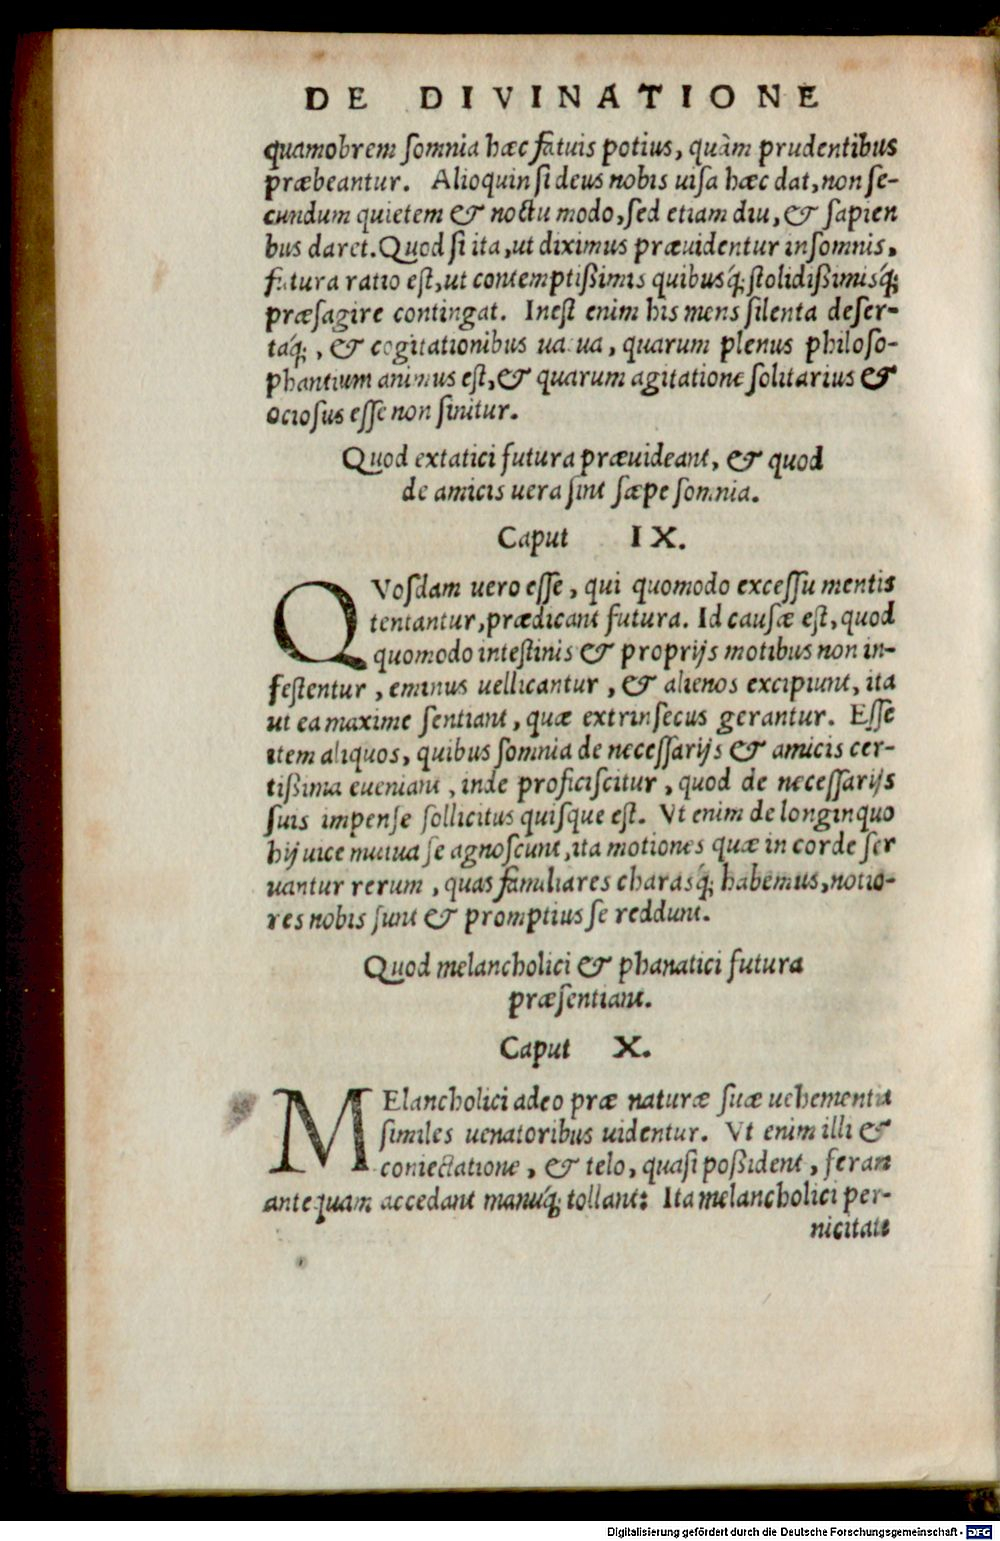 DE DIVINATIONE
quamobrem ſomnia hæc fatuis potius, quàm prudentibus
præbeantur. Alioquin ſi deus nobis uiſa hæc dat, non ſe-
cundum quietem & noctu modo, ſed etiam diu, & ſapien
bus daret. Quod ſi ita, ut diximus præuidentur inſomnis,
futura ratio eſt, ut contemptißimis quibusq́; ſtolidißimisq́;
præſagire contingat. Ineſt enim his mens ſilenta deſer-
taq́;, & cogitationibus uacua, quarum plenus philoſo-
phantium animus eſt, & quarum agitatione ſolitarius &
ocioſus eſſe non ſinitur.
Quod extatici futura præuideant, & quod
de amicis uera ſint ſæpe ſomnia.
Caput IX.
QVoſdam uero eſſe, qui quomodo exceſſu mentis
tentantur, prædicant futura. Id cauſæ eſt, quod
quomodo inteſtinis & proprijs motibus non in-
feſtentur, eminus uellicantur, & alienos excipiunt, ita
ut ea maxime ſentiant, quæ extrinſecus gerantur. Eſſe
item aliquos, quibus ſomnia de neceſſarijs & amicis cer-
tißima eueniant, inde proficiſcitur, quod de neceſſarijs
ſuis impenſe ſollicitus quiſque eſt. Vt enim de longinquo
hij uice mutua ſe agnoſcunt, ita motiones quæ in corde ſer
uantur rerum, quas familiares charasq́; habemus, notio-
res nobis ſunt & promptius ſe reddunt.
Quod melancholici & phanatici futura
præſentiant.
Caput X.
MElancholici adeo præ naturæ ſuæ uehementia
ſimiles uenatoribus uidentur. Vt enim illi &
coniectatione, & telo, quaſi poßident, feram
antequam accedant manuq́; tollant: Ita melancholici per-
nicitate
Digitalisierung gefördert durch die Deutsche Forschungsgemeinschaft - DFG